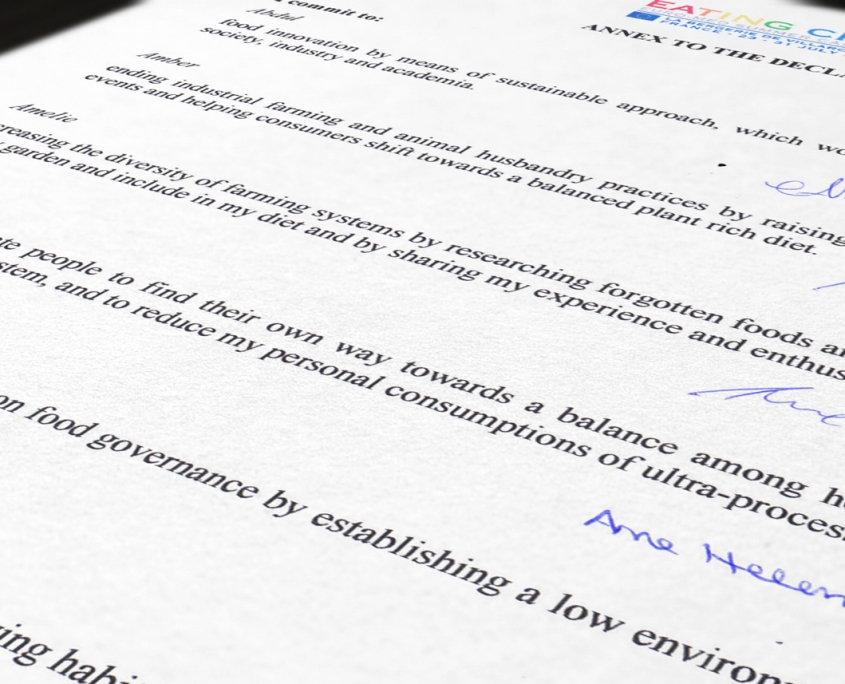 EATING
LA BERGERIE DE VILL
FRANCE • 23 - 31 JULY
ANNEX TO THE DECLA
commit to:
Abdil
food innovation by means of sustainable approach, which wo
society, industry and academia.
Amber
ending industrial farming and animal husbandry practices by raising
events and helping consumers shift towards a balanced plant rich diet.
Amelie
creasing the diversity of farming systems by researching forgotten foods an
garden and include in my diet and by sharing my experience and enthus
ate people to find their own way towards a balance among he
stem, and to reduce my personal consumptions of ultra-process
Ane Helen
on food governance by establishing a low environ
ing habi